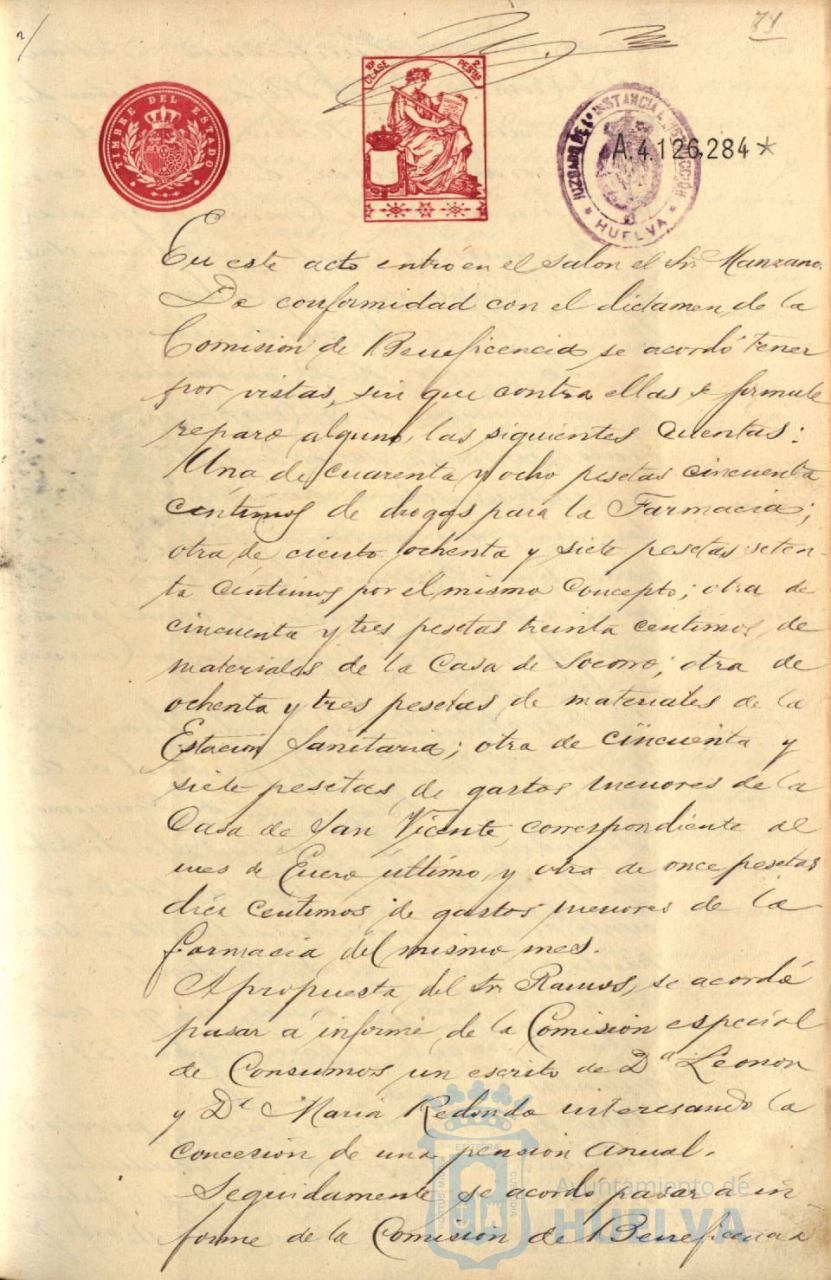 74
TIMBRE DEL ESTADO
10ª CLASE
2 PESETAS
JUZGADO DE 1ª INSTANCIA E INSTRUCCIÓN
HUELVA
A.4.126.284*
En este acto entró en el salon el Sr. Manzano.
De conformidad con el dictamen de la
Comision de Beneficencia se acordó tener
por vistas, sin que contra ellas se formule
reparo alguno, las siguientes cuentas:
Una de cuarenta y ocho pesetas cincuenta
centimos de drogas para la Farmacia;
otra de ciento ochenta y siete pesetas seten-
ta centimos por el mismo concepto; otra de
cincuenta y tres pesetas treinta centimos, de
materiales de la Casa de Socorro; otra de
ochenta y tres pesetas, de materiales de la
Estacion Sanitaria; otra de cincuenta y
siete pesetas de gastos menores de la
Casa de San Vicente, correspondiente al
mes de Enero último, y otra de once pesetas
diez centimos de gastos menores de la
farmacia del mismo mes.
A propuesta del Sr. Ramos, se acordó
pasar á informe de la Comision especial
de Consumos un escrito de Dª Leonor
y Dª Maria Redondo interesando la
concesion de una pension anual.
Seguidamente se acordo pasar á in
forme de la Comision de Beneficencia
Ayuntamiento de
HUELVA